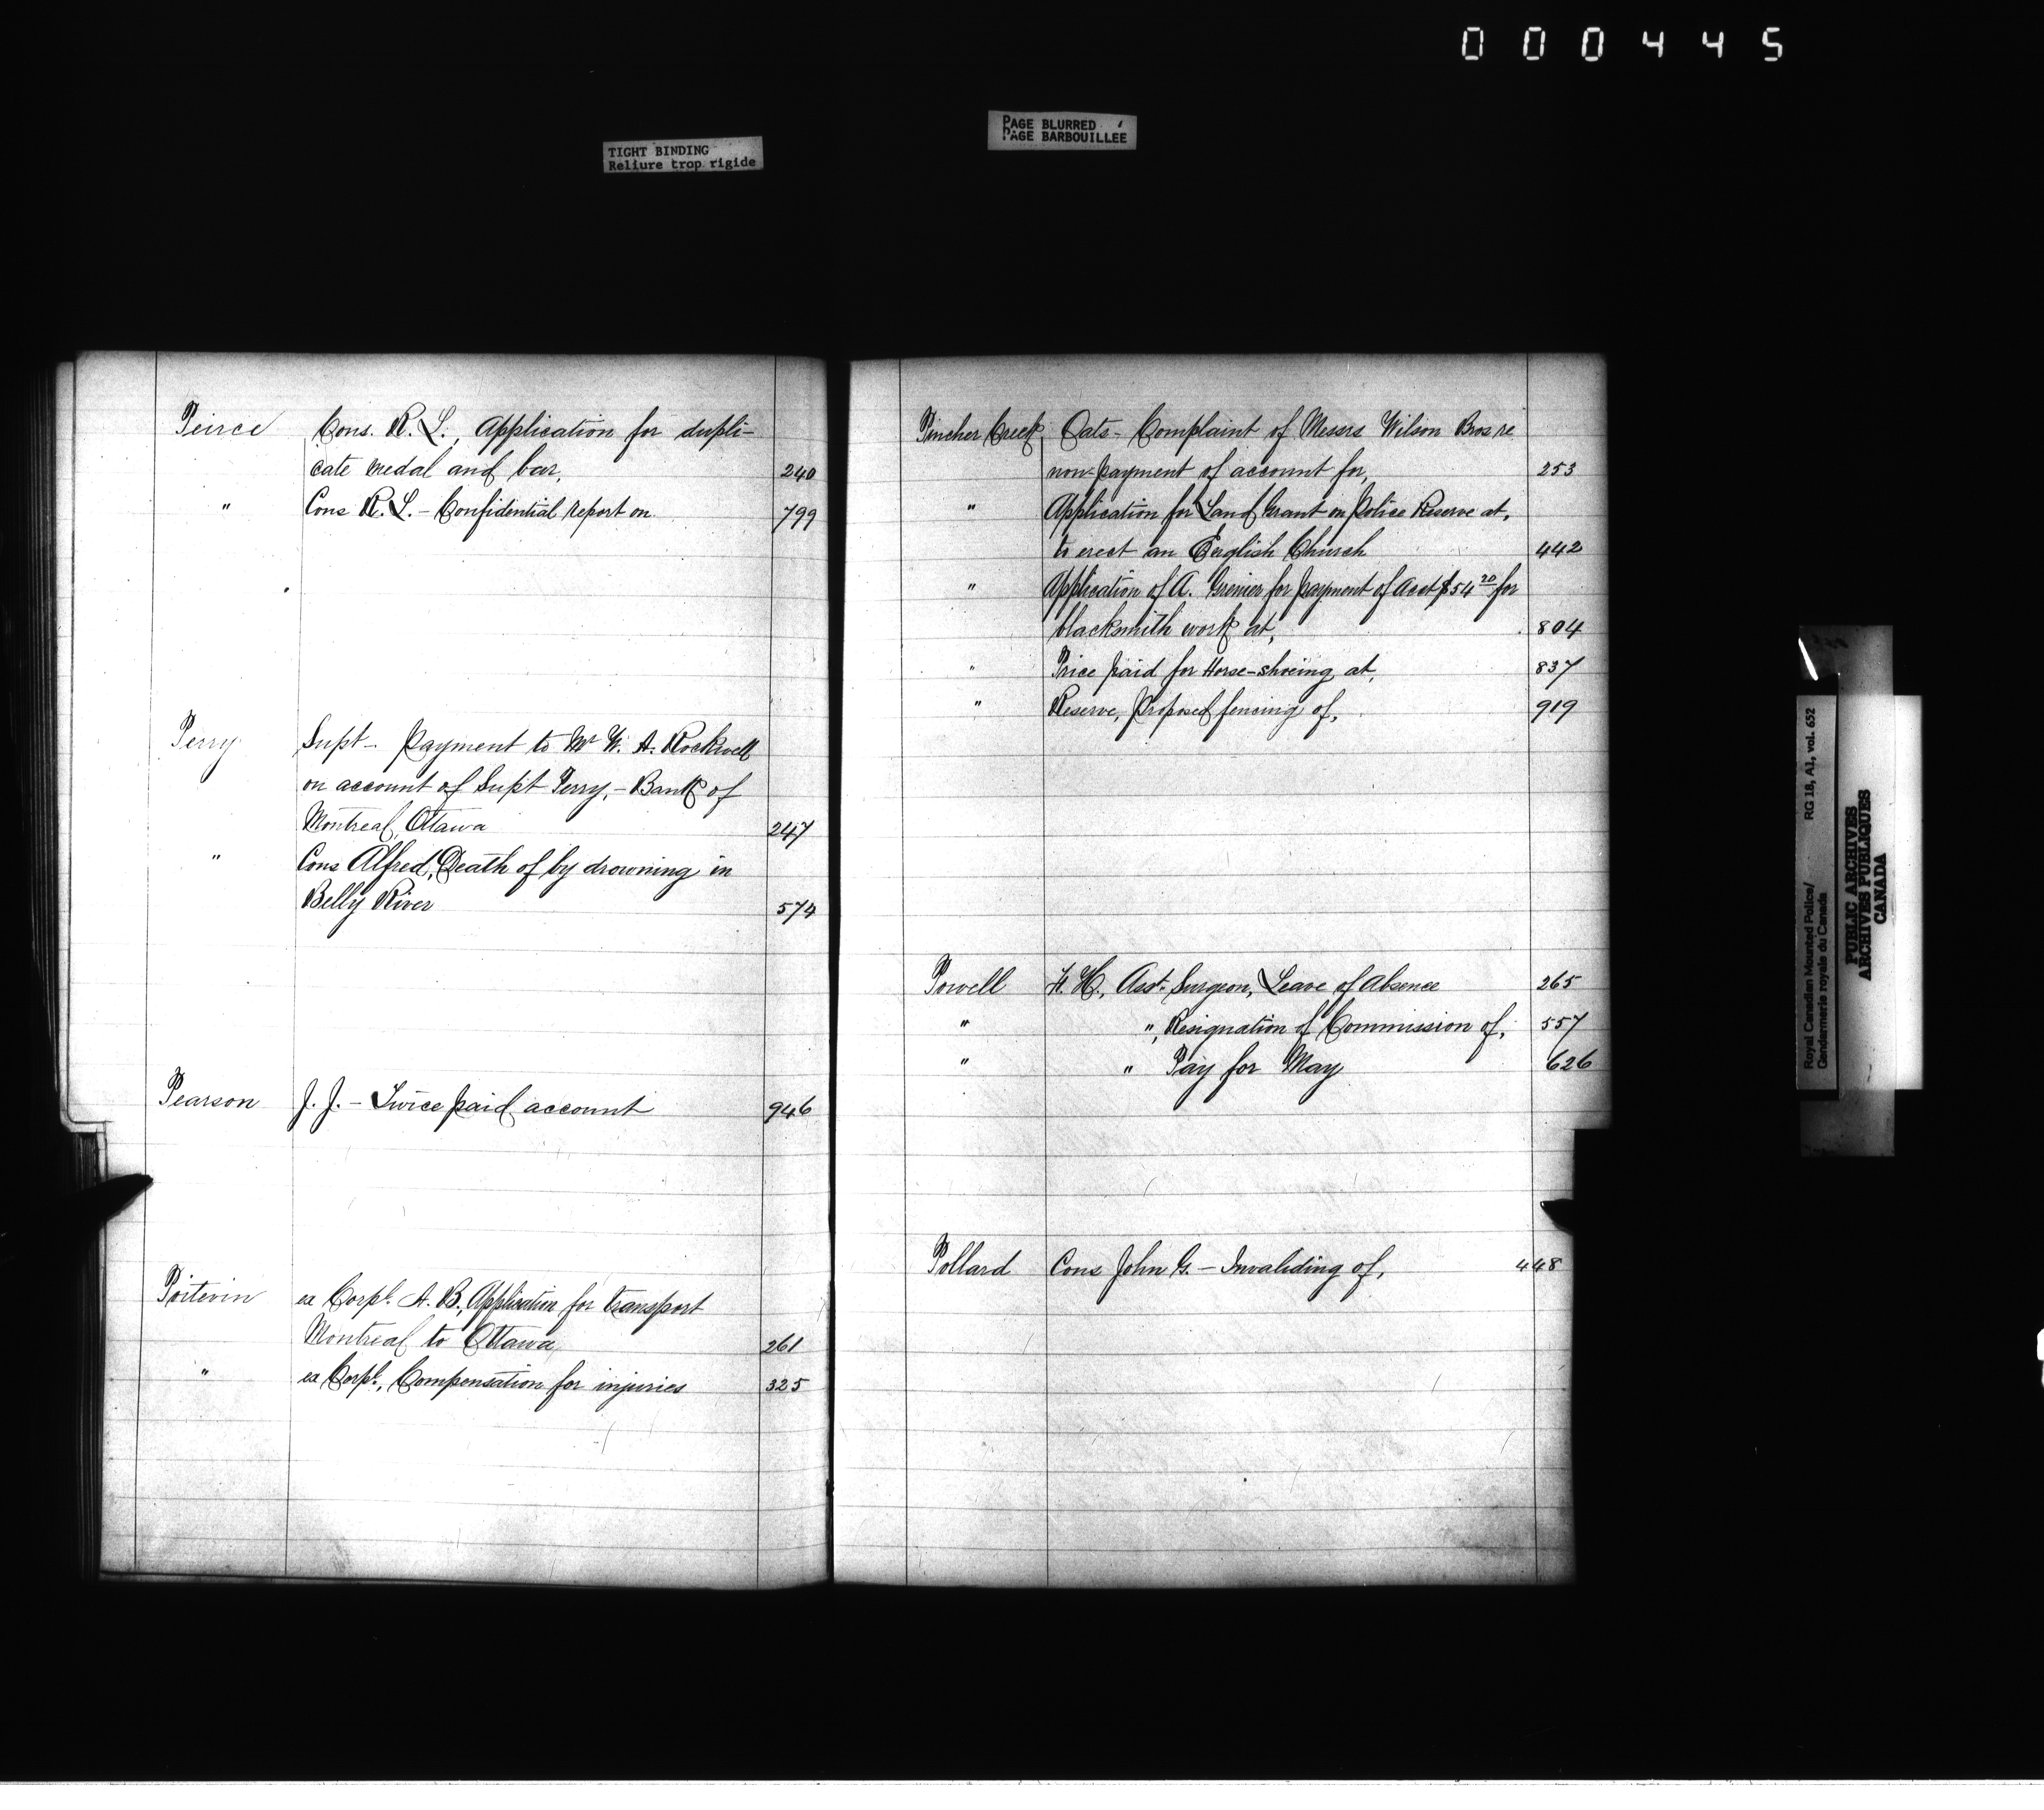 000445
TIGHT BINDING
Reliure trop rigide
PAGE BLURRED
PAGE BARBOUILLEE
Peirce Cons. R. L., Application for dupli-
cate medal and bar, 240
" Cons R. L. - Confidential report on 799
Perry Supt - Payment to Mr W. A. Rockwell
on account of Supt Perry, - Bank of
Montreal, Ottawa 247
" Cons Alfred, Death of by drowning in
Belly River 574
Pearson J. J. - Twice paid account 946
Poitevin ex Corpl. A. B., Application for transport
Montreal to Ottawa 261
" ex Corpl., Compensation for injuries 325
Pincher Creek Oats - Complaint of Messrs Wilson Bros re
non-payment of account for, 253
" Application for Land Grant on Police Reserve at,
to erect an English Church 442
" Application of A. Grenier for payment of Acct $54 20 for
blacksmith work at, 804
" Price paid for Horse-shoeing at, 837
" Reserve, Proposed fencing of, 919
Powell F. H., Asst. Surgeon, Leave of Absence 265
" ", Resignation of Commission of, 557
" " Pay for May 626
Pollard Cons John G. - Invaliding of, 448
Royal Canadian Mounted Police/ RG 18, A1, vol. 652
Gendarmerie royale du Canada
PUBLIC ARCHIVES
ARCHIVES PUBLIQUES
CANADA